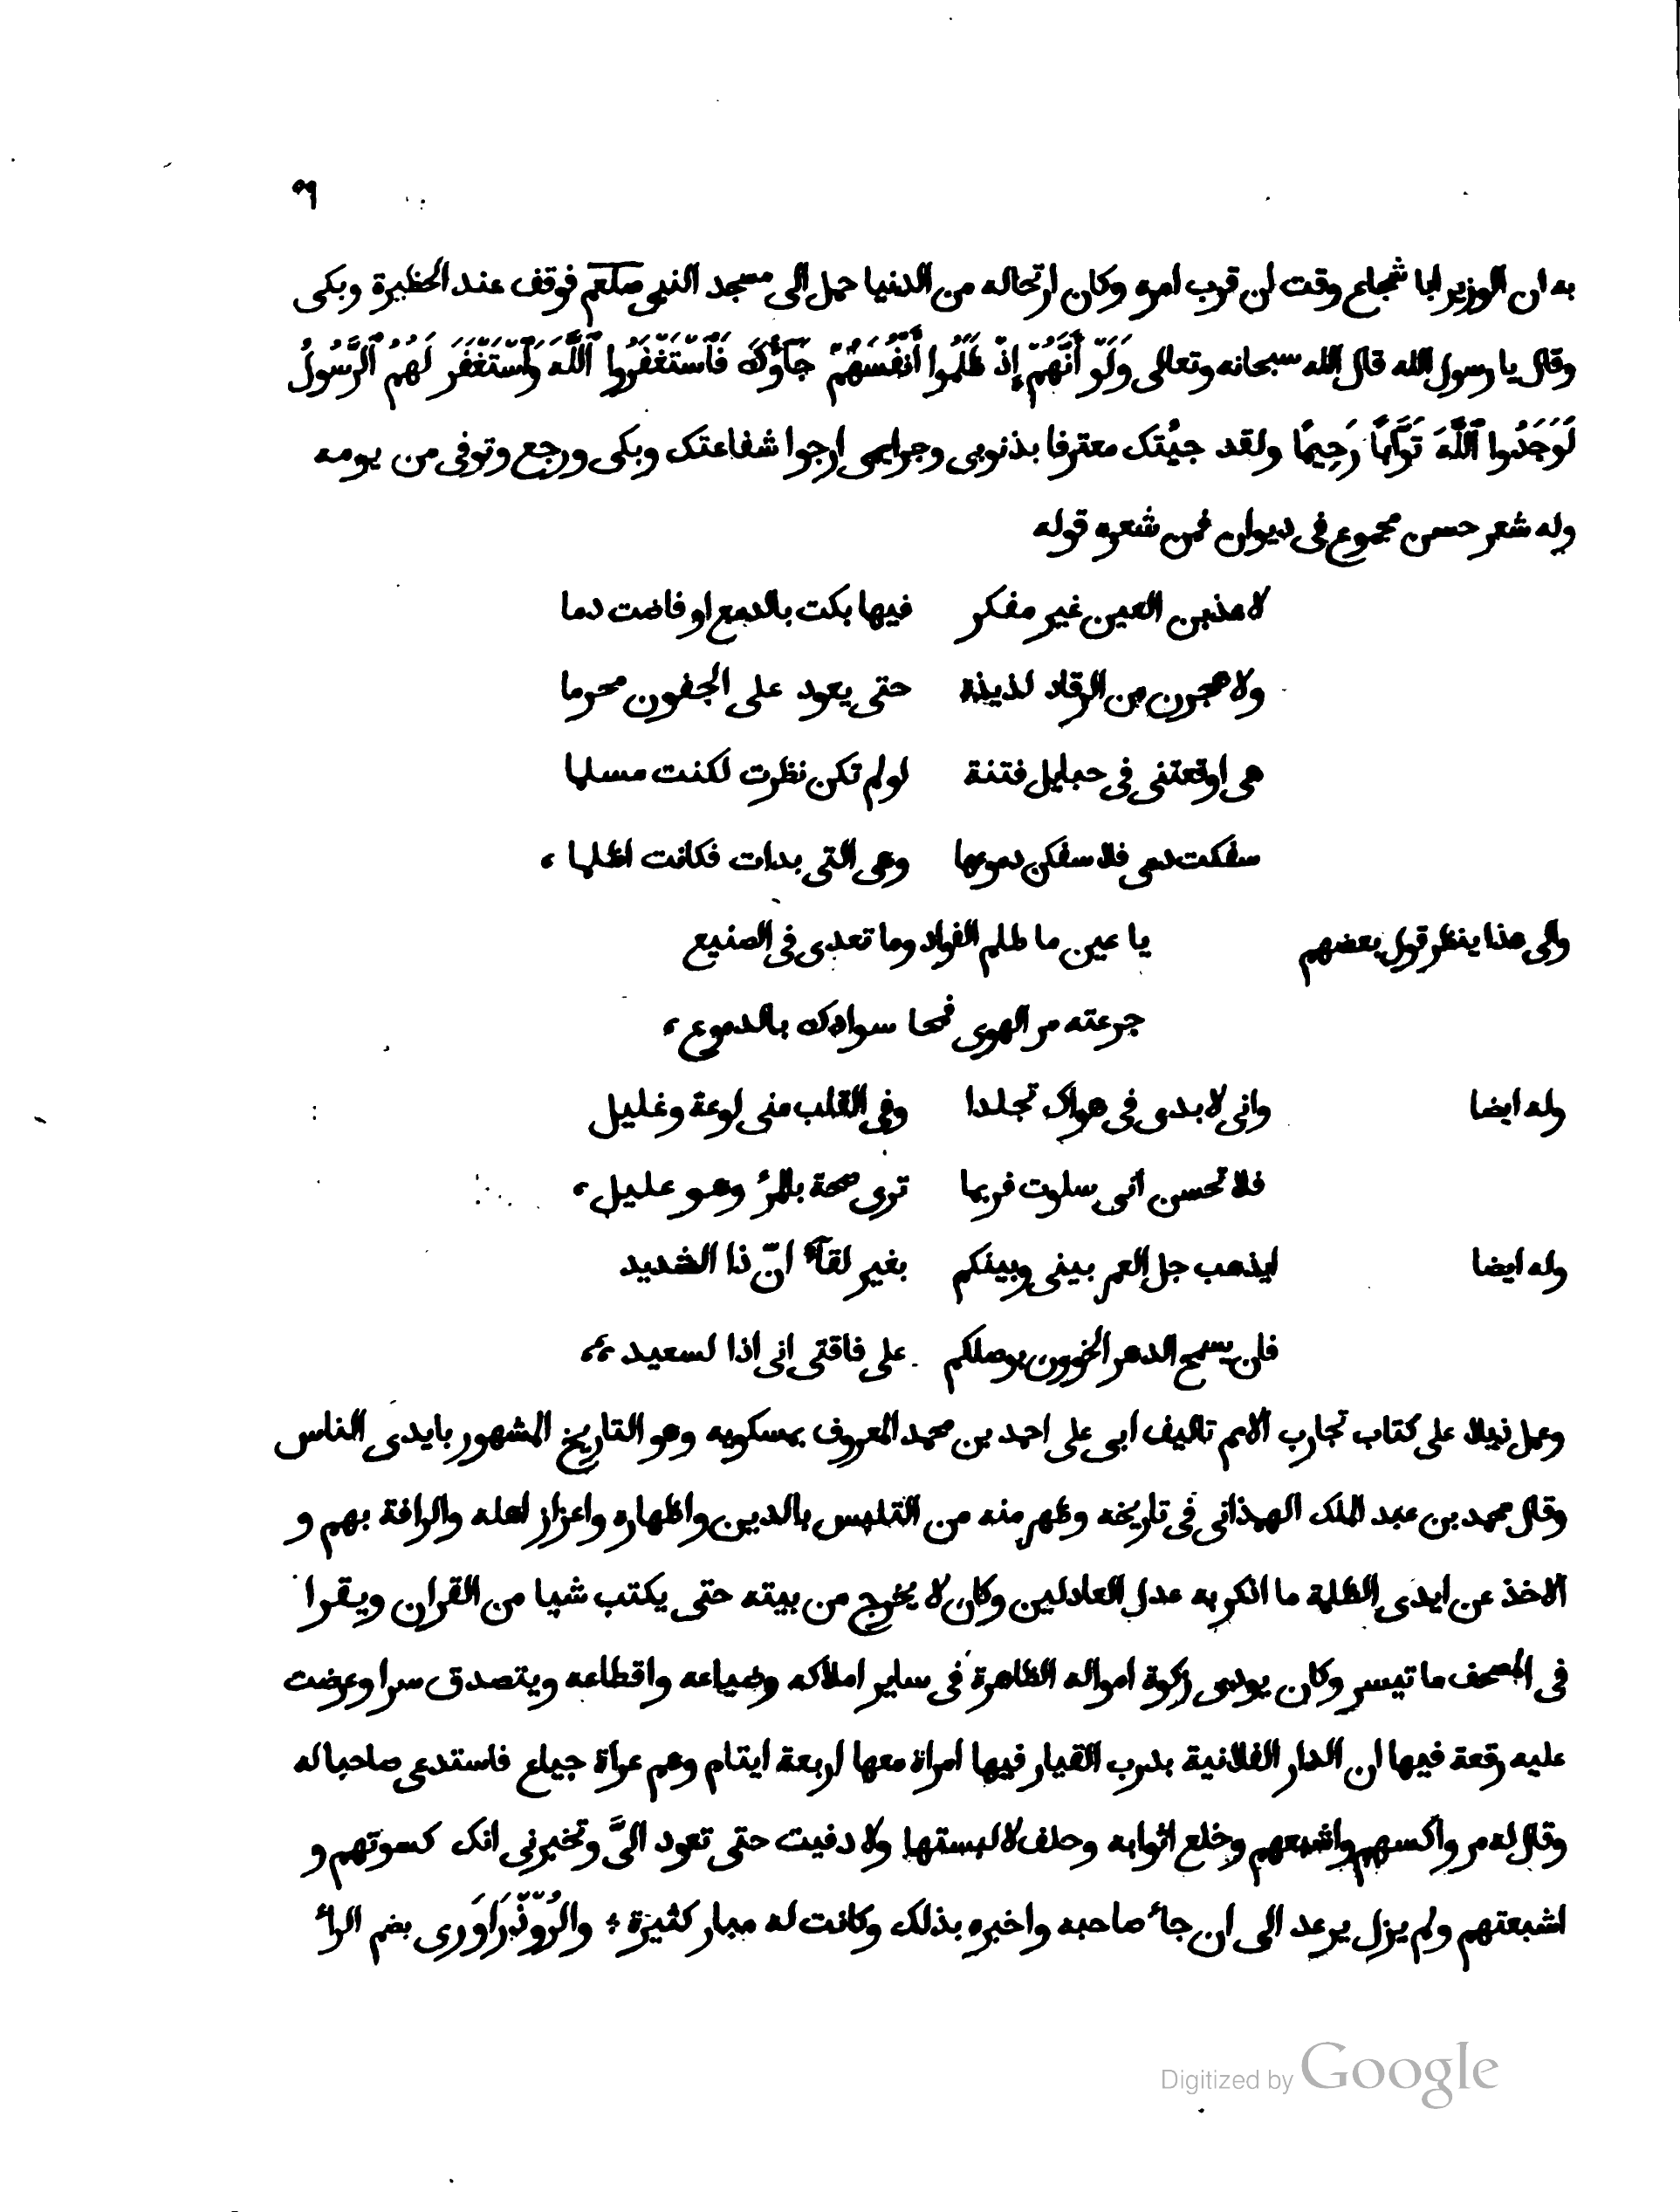 ٥٩
به ان الوزير ابا شجاع وقت ان قرب امره وكان ارتحاله من الدنيا حمل الى مسجد النبى صلعم فوقف عند الحظيرة وبكى
وقال يا رسول الله قال الله سبحانه وتعالى وَلَوْ أَنَّهُمْ إِذْ ظَلَمُوا أَنْفُسَهُمْ جَآؤُكَ فَٱسْتَغْفَرُوا ٱللَّهَ وَٱسْتَغْفَرَ لَهُمُ ٱلرَّسُولُ
لَوَجَدُوا ٱللَّهَ تَوَّابًا رَحِيمًا ولقد جيُتك معترفا بذنوبى وجرايمى ارجوا شفاعتك وبكى ورجع وتوفى من يومه
وله شعر حسن مجموع فى ديوان فمن شعره قوله
لاعذبن العين غير مفكر فيها بكت بالدمع او فاضت دما
ولاهجرن من الرقاد لذيذة حتى يعود على الجفون محرما
هى اوقعتنى فى حبايل فتنة لو لم تكن نظرت لكنت مسلما
سفكت دمى فلاسفكن دموعها وهى التى بدات فكانت اظلما ،
والى هذا ينظر قول بعضهم يا عين ما ظلم الفواد وما تعدى فى الصنيع
جرعته مر الهوى فمحا سوادك بالدموع ،
وله ايضا وانى لابدى فى هواك تجلدا وفى القلب منى لوعة وغليل
فلا تحسبن انى سلوت فربما ترى صحة بالمرُ وهو عليل ،
وله ايضا ايذهب جل العمر بينى وبينكم بغير لقآُ انّ ذا لشديد
فان يسمح الدهر الخوون بوصلكم على فاقتى انى اذا لسعيد ،،
وعمل ذيلا على كتاب تجارب الامم تاليف ابى على احمد بن محمد المعروف بمسكويه وهو التاريخ المشهور بايدى الناس
وقال محمد بن عبد الملك الهمذانى فى تاريخه وظهر منه من التلبس بالدين واظهاره واعزاز اهله والرافة بهم و
الاخذ عن ايدى الظلمة ما اذكر به عدل العادلين وكان لا يخرج من بيته حتى يكتب شيا من القران ويقرا
فى المصحف ما تيسر وكان يودى زكوة امواله الظاهرة فى ساير املاكه وضياعه واقطاعه ويتصدق سرا وعرضت
عليه رقعة فيها ان الدار الفلانية بدرب القيار فيها امراة معها اربعة ايتام وهم عراة جياع فاستدعى صاحبا له
وقال له مر واكسهم واشبعهم وخلع اثوابه وحلف لا لبستها ولا دفيت حتى تعود الىَّ وتخبرنى انك كسوتهم و
اشبعتهم ولم يزل يرعد الى ان جاُ صاحبه واخبره بذلك وكانت له مبار كثيرة ؛ والرُوذْرَاوَرى بضم الراُ
Digitized by Google